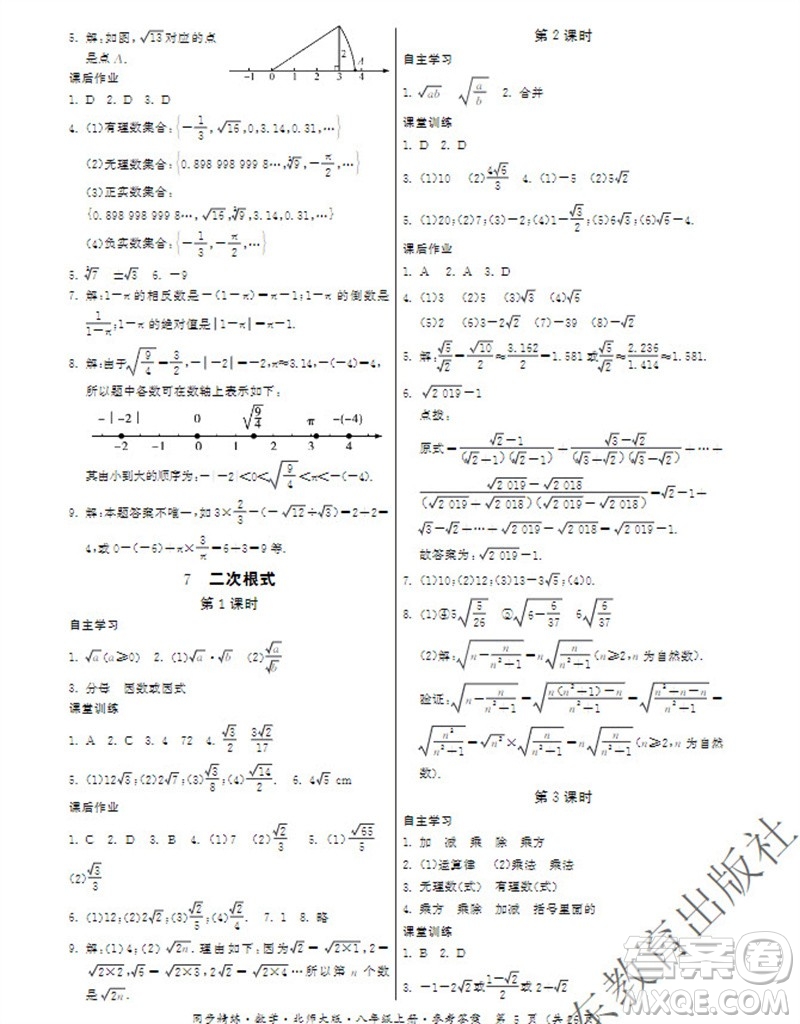 5. 解:如图,√13对应的点
是点 A.
-1 0 1 2 3 4 2 A
课后作业
1. D 2. D 3. D
4. (1)有理数集合:{-1/3,√16,0,3.14,0.31,…}
(2)无理数集合:{0.898 998 999 8…,∛9,-π/2,…}
(3)正实数集合:
{0.898 998 999 8…,√16,∛9,3.14,0.31,…}
(4)负实数集合:{-1/3,-π/2,…}
5. ∛7 ±√3 6. -9
7. 解:1-π的相反数是-(1-π)=π-1;1-π的倒数是
1/(1-π);1-π的绝对值是|1-π|=π-1.
8. 解:由于√(9/4)=3/2,-|-2|=-2,π≈3.14,-(-4)=4,
所以题中各数可在数轴上表示如下:
-|-2| 0 √(9/4) π -(-4)
-2 -1 0 1 2 3 4
其由小到大的顺序为:-|-2|<0<√(9/4)<π<-(-4).
9. 解:本题答案不唯一,如3×2/3-(-√12÷√3)=2+2=
4,或0-(-6)+π×3/π=6+3=9 等.
7 二次根式
第 1 课时
自主学习
1. √a(a≥0) 2. (1)√a·√b (2)√a/√b
3. 分母 因数或因式
课堂训练
1. A 2. C 3. 4 72 4. √3/2 3√2/17
5. (1)12√3;(2)2√7;(3)√3/8;(4)√14/2. 6. 4√5 cm
课后作业
1. C 2. D 3. B 4. (1)7 (2)√2/3 5. (1)√55/5
(2)√3/3
6. (1)12;(2)2√2;(3)√2/5;(4)√2/4. 7. 1 8. 略
9. 解:(1)4;(2) √2n. 理由如下:因为√2=√(2×1),2=
√(2×2),√6=√(2×3),2√2=√(2×4),…所以第 n 个数
是√2n.
第 2 课时
自主学习
1. √ab √(a/b) 2. 合并
课堂训练
1. D 2. D
3. (1)10 (2)4√6/3 4. (1)-5 (2)5√2
5. (1)20;(2)7;(3)-2;(4)1-√3/2;(5)6√3;(6)√5-4.
课后作业
1. A 2. A 3. D
4. (1)3 (2)5 (3)√3 (4)√5
(5)2 (6)3-2√2 (7)-39 (8)-√2
5. 解:√5/√2=√10/2≈3.162/2=1.581或√5/√2≈2.236/1.414≈1.581.
6. √2 019-1
点拨:
原式=(√2-1)/((√2+1)(√2-1))+(√3-√2)/((√3+√2)(√3-√2))+…+
(√2 019-√2 018)/((√2 019+√2 018)(√2 019-√2 018))=√2-1+
√3-√2+…+√2 019-√2 018=√2 019-1.
故答案为:√2 019-1.
7. (1)10;(2)12;(3)13-3√5;(4)0.
8. (1)④5√(5/26) ⑤√(6-6/37) 6√(6/37)
(2)解:√(n-n/(n²+1))=n√(n/(n²+1))(n≥2,n 为自然数).
验证:√(n-n/(n²+1))=√((n(n²+1)-n)/(n²+1))=√((n³+n-n)/(n²+1))=
√(n³/(n²+1))=√n²×√(n/(n²+1))=n√(n/(n²+1))(n≥2,n 为自然
数).
第 3 课时
自主学习
1. 加 减 乘 除 乘方
2. (1)运算律 (2)乘法 乘法
3. 无理数(式) 有理数(式)
4. 乘方 乘除 加减 括号里面的
课堂训练
1. B 2. D
3. -1-√2或(1-√2)/2或2+√2
同步精练·数学·北师大版·八年级上册·参考答案 第 5 页 (共 25 页)
东教育出版社
答案圈